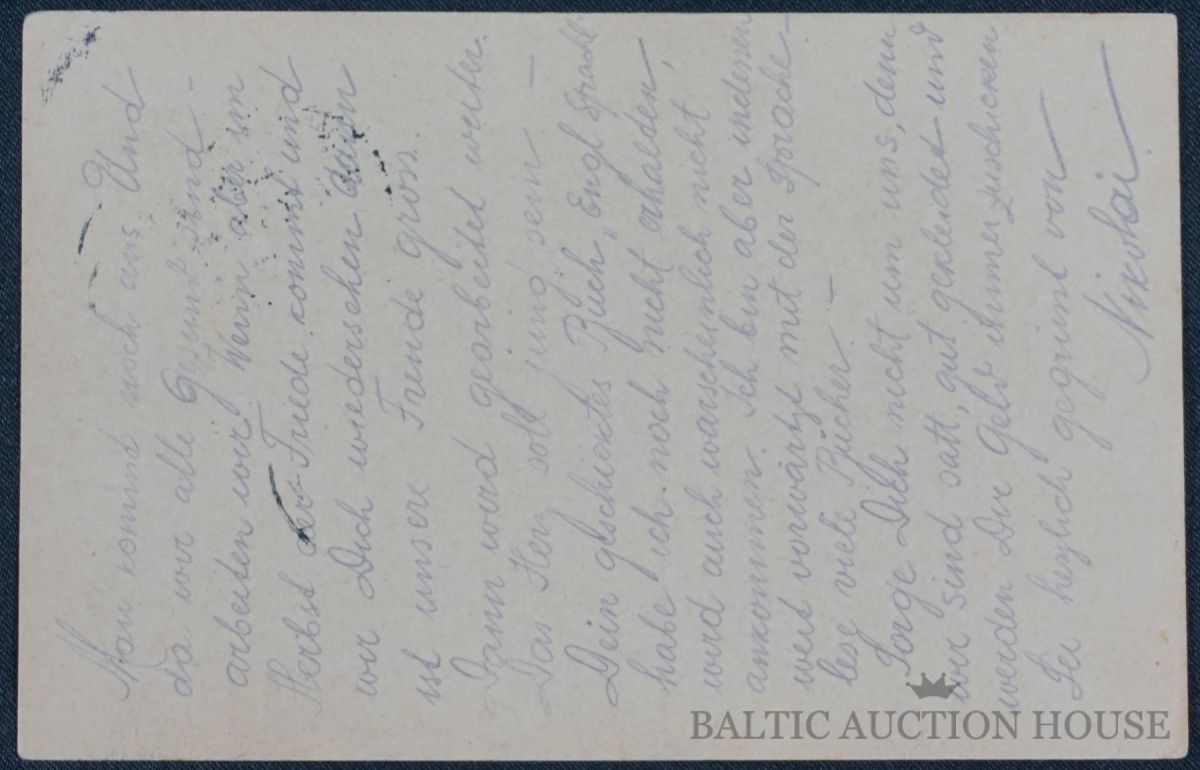 Man kommt noch aus. Und
da wir alle Gesunt sind -
arbeiten wir. Wenn aber im
Herbst der Friede kommt und
wir Dich wiedersehen dann
ist unsere Freude gross.
Dann wird gearbeitet weiter.
Das Herz soll jung sein —
Dein geschicktes Buch „Engl Sprache
habe ich noch nicht erhalden,
wird auch warscheinlich nicht
ankommen. Ich bin aber indessen
weit vorwärtz mit der Sprache —
les viele Bücher. —
Sorge Dich nicht um uns, denn
wir sind satt, gut gekleidet und
werden Dir Geld immer zuschicken
Sei hezlich gegrüsst von
Nikolai.
BALTIC AUCTION HOUSE